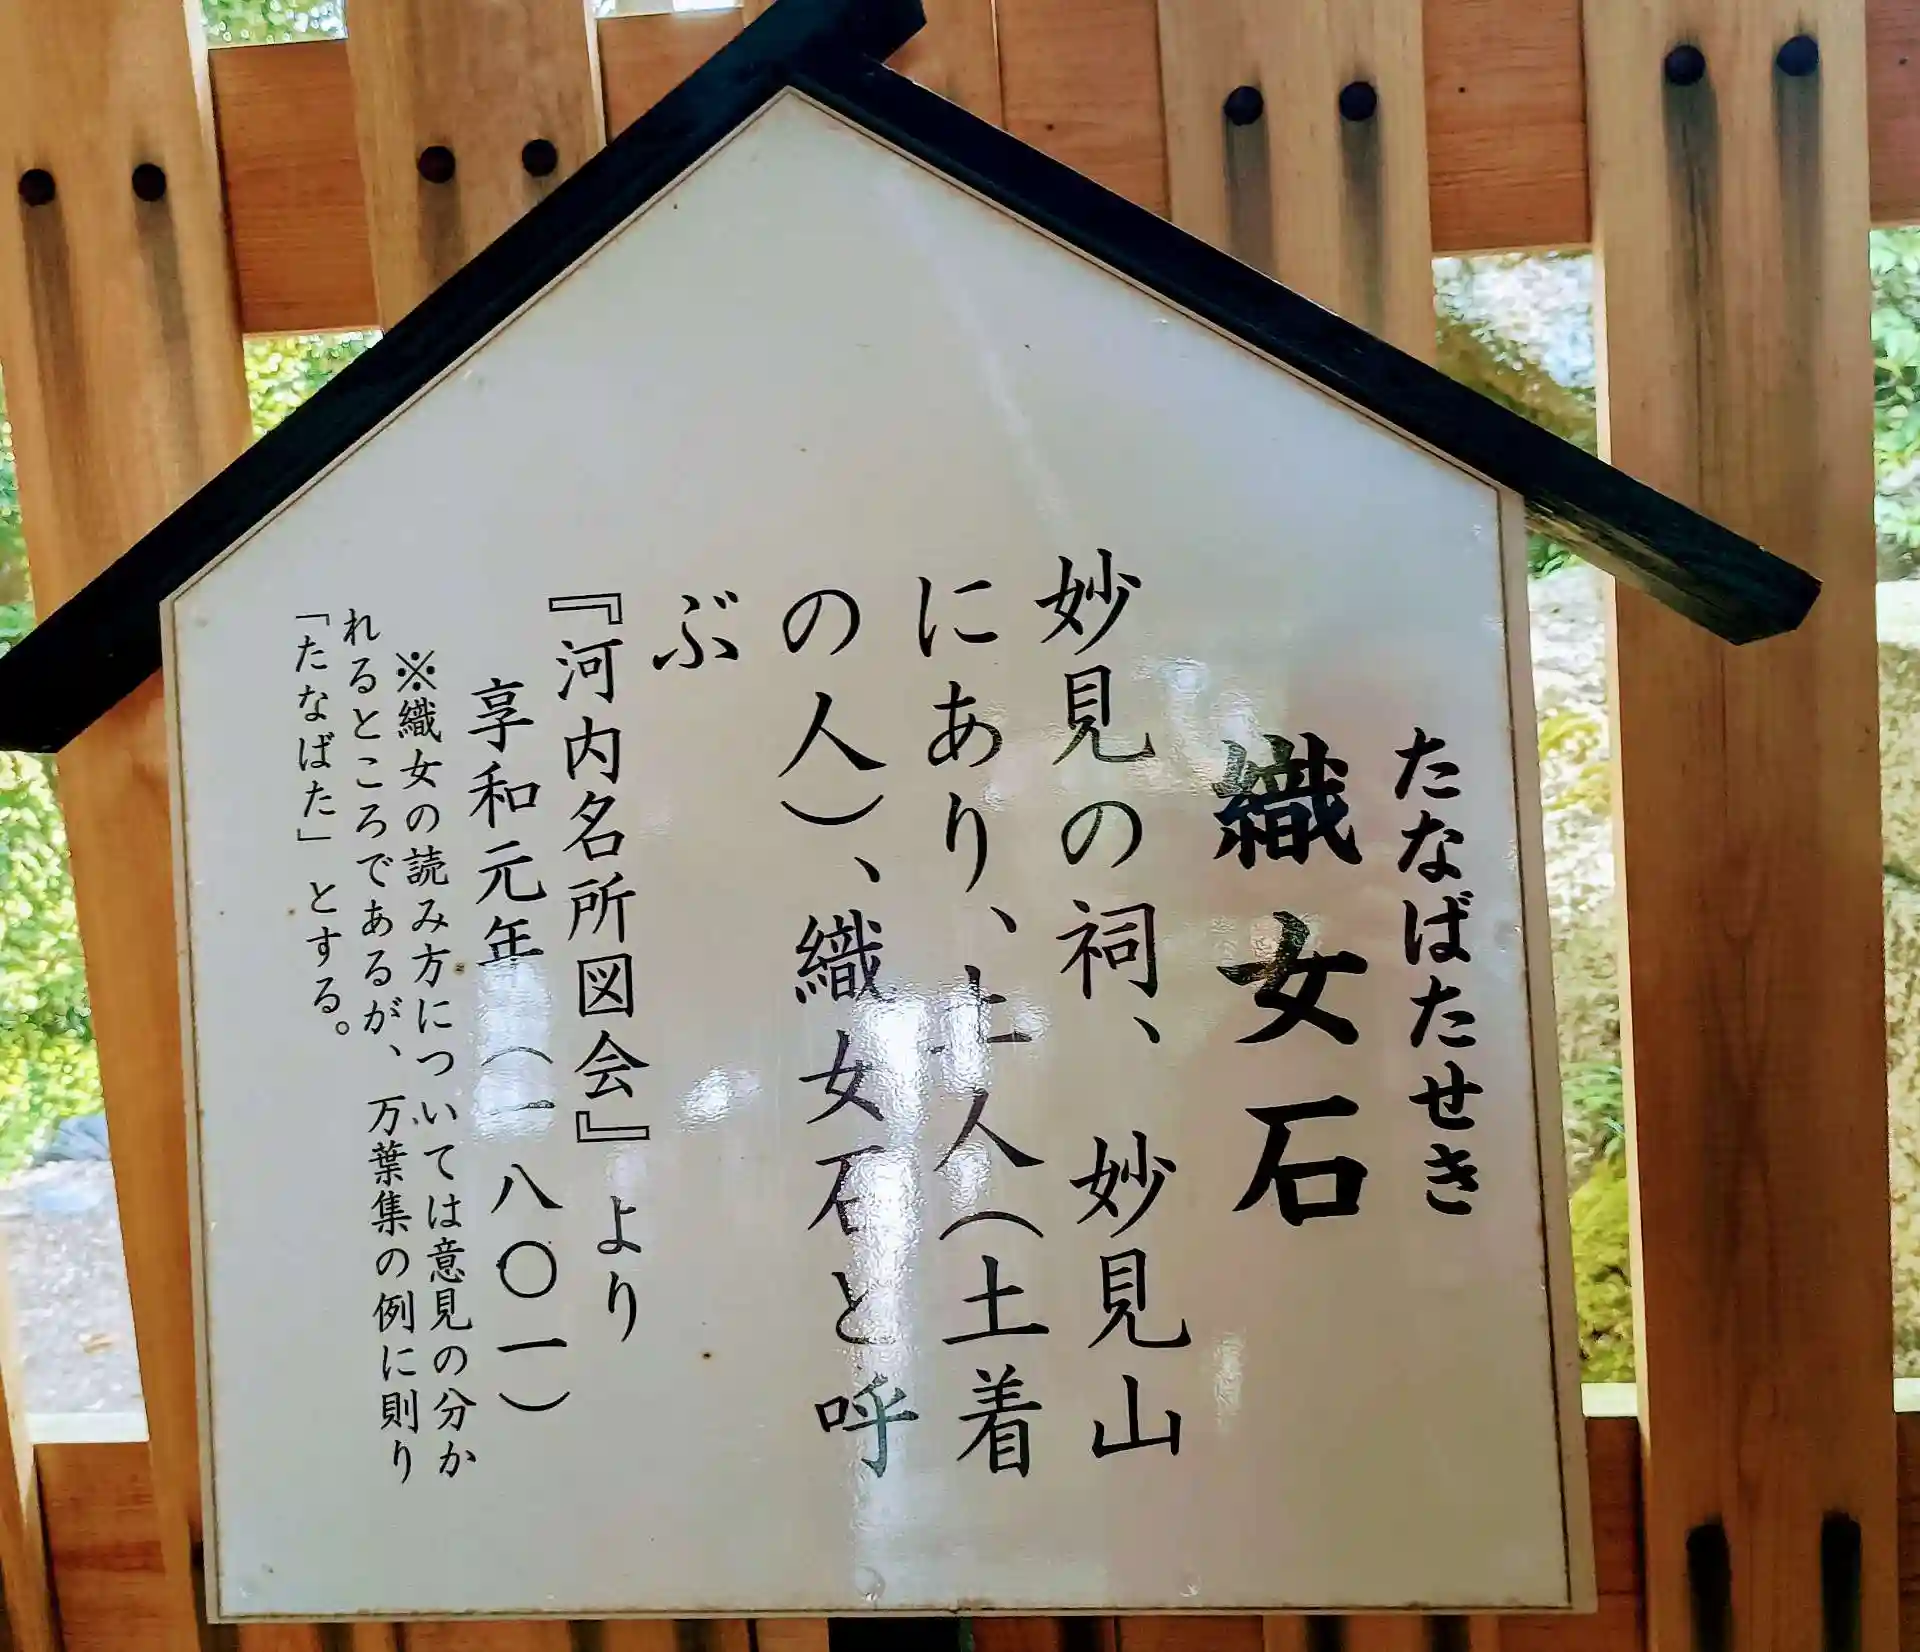 たなばたせき
織女石
妙見の祠、妙見山
にあり、土人（土着
の人）、織女石と呼
ぶ
『河内名所図会』より
享和元年（一八〇一）
※織女の読み方については意見の分か
れるところであるが、万葉集の例に則り
「たなばた」とする。